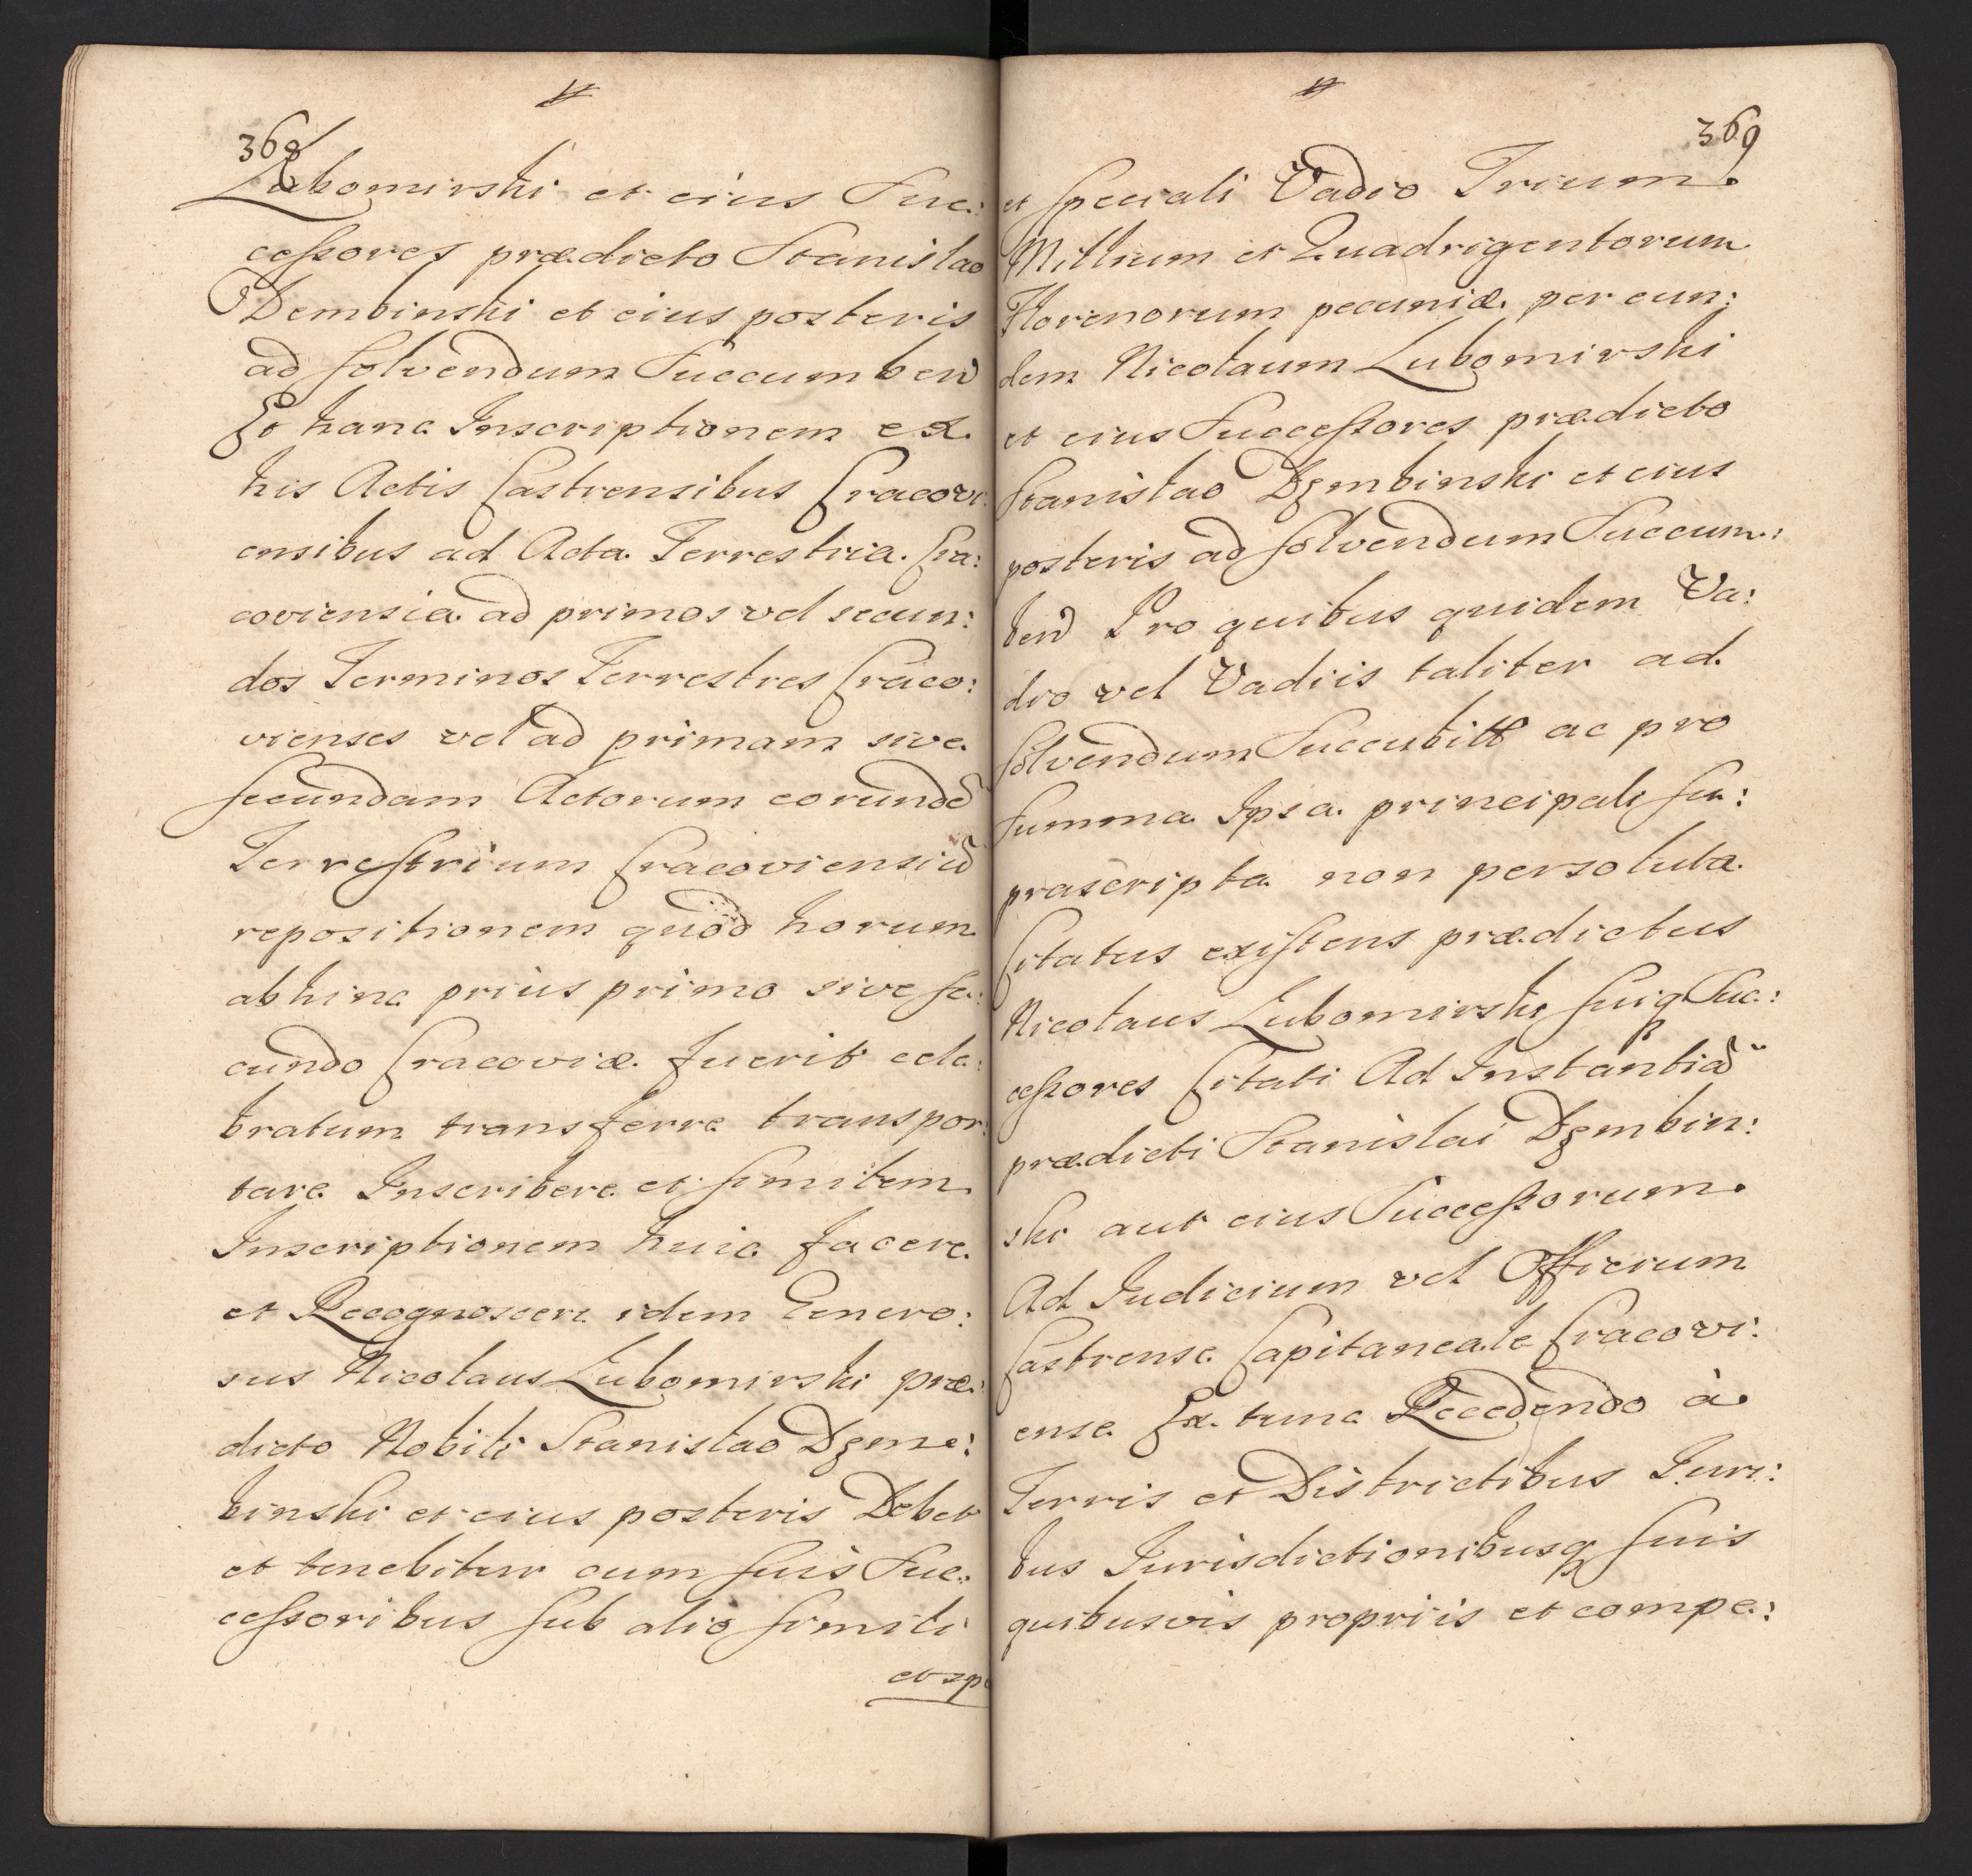 368
Lubomirski et eius Suc:
cessores prædicto Stanislao
Dembinski et eius posteris
ad solvendum Succumbend
Et hanc Inscriptionem ex
his Actis Castrensibus Cracovi:
ensibus ad Acta Terrestria Cra:
coviensia ad primos vel secun:
dos Terminos Terrestres Craco:
vienses vel ad primam sive
secundam Actorum eorundē
Terrestrium Cracoviensiū
repositionem quod horum
abhinc prius primo sive se:
cundo Cracoviæ fuerit cele:
bratum transferre transpor:
tare Inscribere et similem
Inscriptionem huic facere
et Recognoscere idem Genero:
sus Nicolaus Lubomirski præ:
dicto Nobili Stanislao Dęm:
binski et eius posteris Debet
et tenebitur cum suis Suc:
cessoribus sub alio simili
et spe
369
et speciali Vadio Trium
Millium et Quadrigentorum
Florenorum pecuniæ per eun:
dem Nicolaum Lubomirski
et eius Successores prædicto
Stanislao Dęmbinski et eius
posteris ad solvendum Succum:
bend Pro quibus quidem Va:
dio vel Vadiis taliter ad
solvendum Succubitt ac pro
summa Ipsa principali su:
prascripta non persoluta
Citatus existens prædictus
Nicolaus Lubomirski suiq Suc:
cessores Citati Ad Instantiā
prædicti Stanislai Dęmbin:
ski aut eius Successorum
Ad Iudicium vel Officium
Castrense Capitaneale Cracovi:
ense Ex tunc Recedendo à
Terris et Districtibus Iuri:
bus Iurisdictionibusq suis
quibusvis propriis et compe: